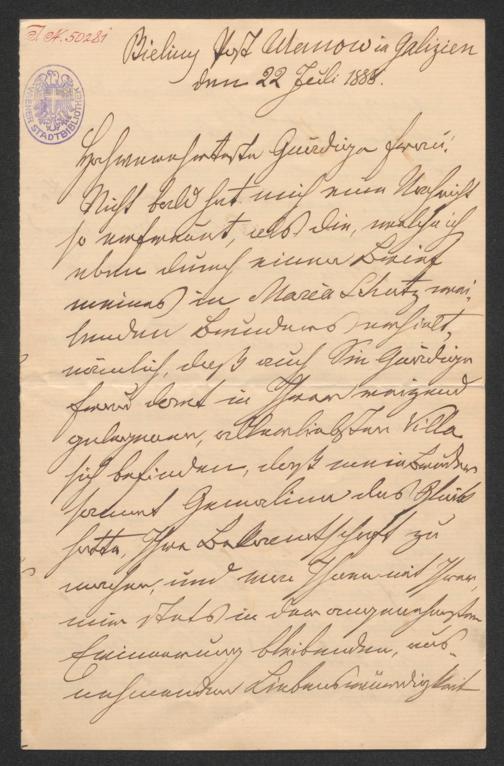 I. N. 50281
WIENER STADTBIBLIOTHEK
Bieliny Post Ulanow in Galizien
den 22 Juli 1888.
Hochverehrteste Gnädige Frau!
Nicht bald hat mich eine Nachricht
so erfreut, als die, welche ich
eben durch einen Brief
meines in Maria Schutz wei-
lenden Bruders erhielt,
nämlich, daß auch Sie Gnädige
Frau dort in Ihrer reizend
gelegenen, allerliebsten Villa
sich befinden, daß mein Bruder
sammt Gemalin das Glück
hatte, Ihre Bekanntschaft zu
machen, und von Ihnen mit Ihrer,
mir stets in der angenehmsten
Erinnerung bleibenden, aus-
nehmenden Liebenswürdigkeit